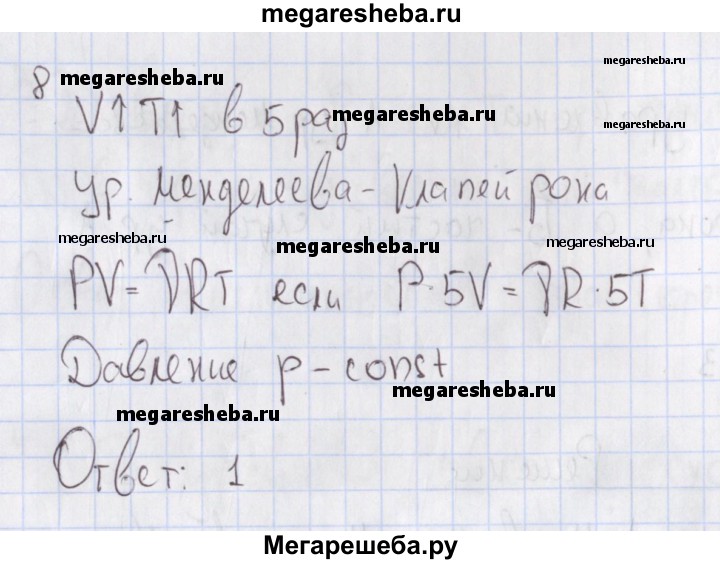 megaresheba.ru
8 megaresheba.ru megaresheba.ru
V↑ T↑ в 5 раз megaresheba.ru
megaresheba.ru
Ур. Менделеева - Клапейрона
megaresheba.ru megaresheba.ru megaresheba.ru
PV = νRT если P·5V = νR·5T
Давление p - const
megaresheba.ru
megaresheba.ru
Ответ: 1
Мегарешеба.ру